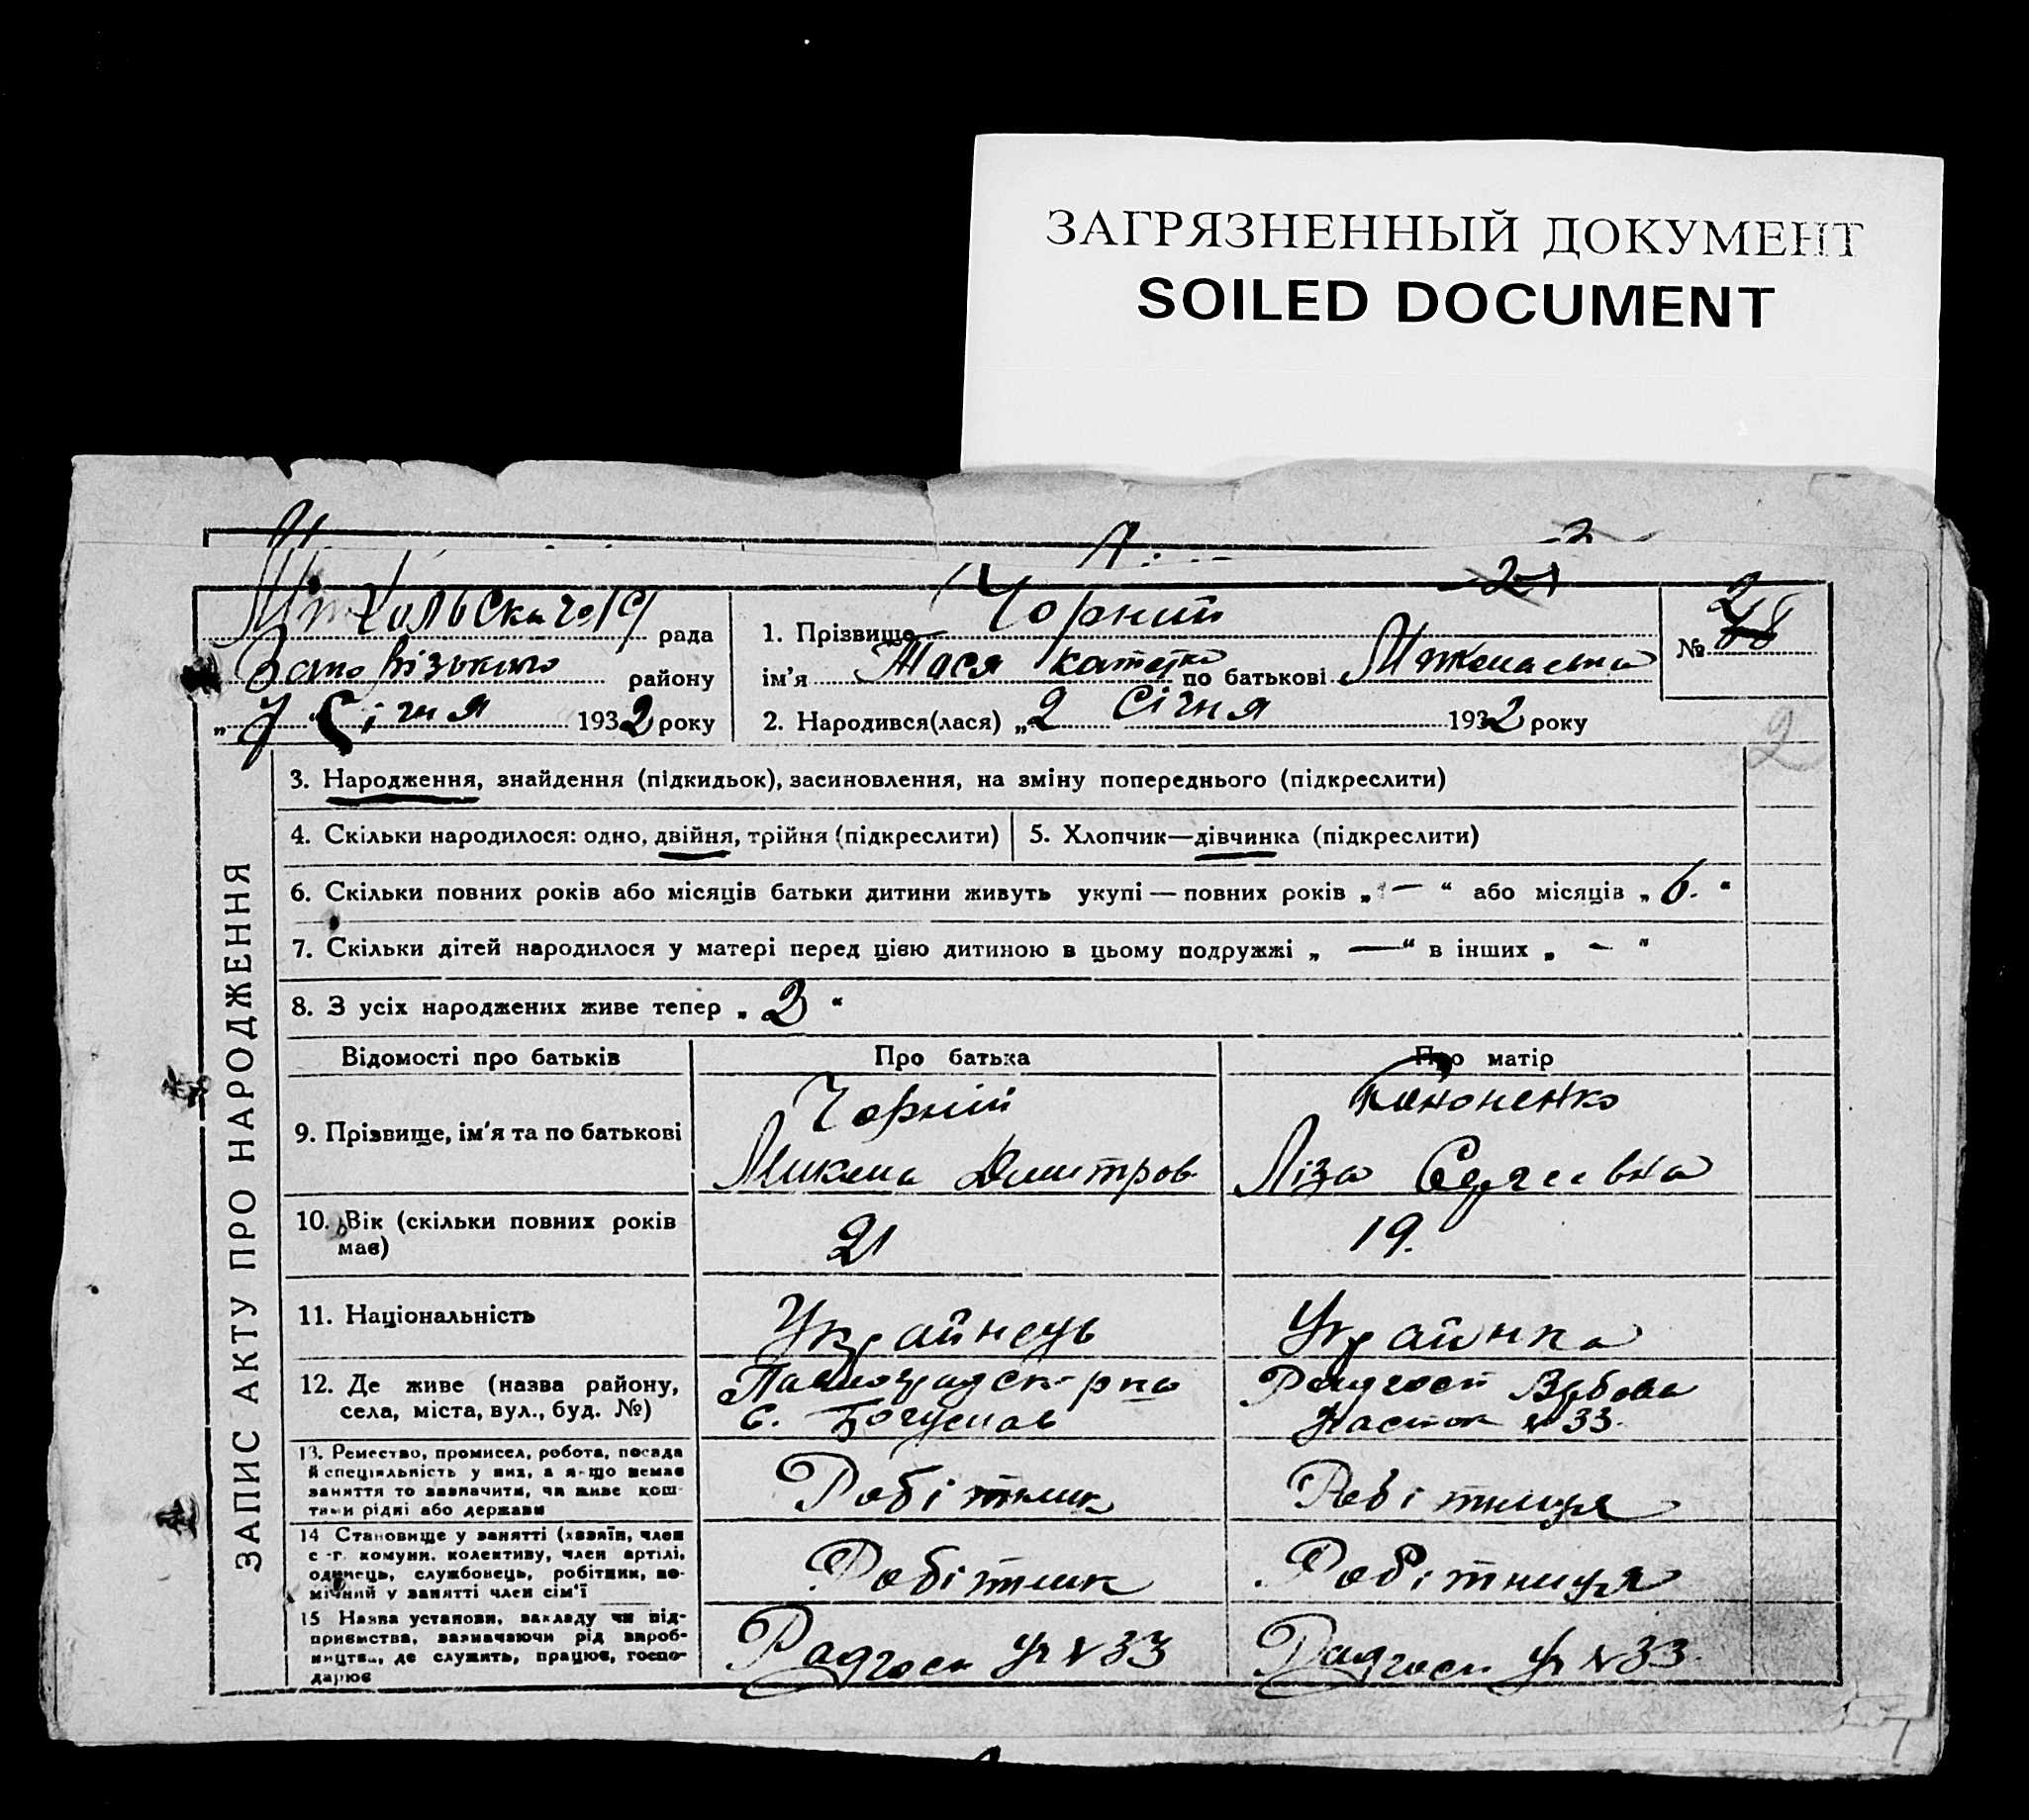 ЗАГРЯЗНЕННЫЙ ДОКУМЕНТ
SOILED DOCUMENT
рада
району
„7 Січня 1932 року
1. Прізвище Чорний
ім'я Тася по батькові
№ 2
2. Народився(лася) „2 Січня 1932 року
2
ЗАПИС АКТУ ПРО НАРОДЖЕННЯ
3. Народження, знайдення (підкидьок), засиновлення, на зміну попереднього (підкреслити)
4. Скільки народилося: одно, двійня, трійня (підкреслити)
5. Хлопчик—дівчинка (підкреслити)
6. Скільки повних років або місяців батьки дитини живуть укупі — повних років „ — “ або місяців „ 6. “
7. Скільки дітей народилося у матері перед цією дитиною в цьому подружжі „ — “ в інших „ — “
8. З усіх народжених живе тепер „ 2 “
Відомості про батьків
Про батька
Про матір
9. Прізвище, ім'я та по батькові
Чорний
Микола Дмитров
Кононенко
Ліза Сергеевна
10. Вік (скільки повних років
має)
21
19.
11. Національність
Украйнець
Украинка
12. Де живе (назва району,
села, міста, вул., буд. №)
Павлоградск рна
с. Богуслав
Радгосп
Участок № 33.
13. Ремество, промисел, робота, посада
й спеціяльність у них, а якщо немає
заняття то зазначити, чи живе кош-
тами рідні або держави
Робітник
Робітниця
14 Становище у занятті (хазяїн, член
с.-г. комуни, колективу, член артілі,
одинець, службовець, робітник, по-
мічний у занятті член сім'ї
Робітник
Робітниця
15 Назва установи, закладу чи під-
приємства, зазначаючи рід вироб-
ництва, де служить, працює, госпо-
дарює
Радгосп Уч № 33
Радгосп Уч № 33.